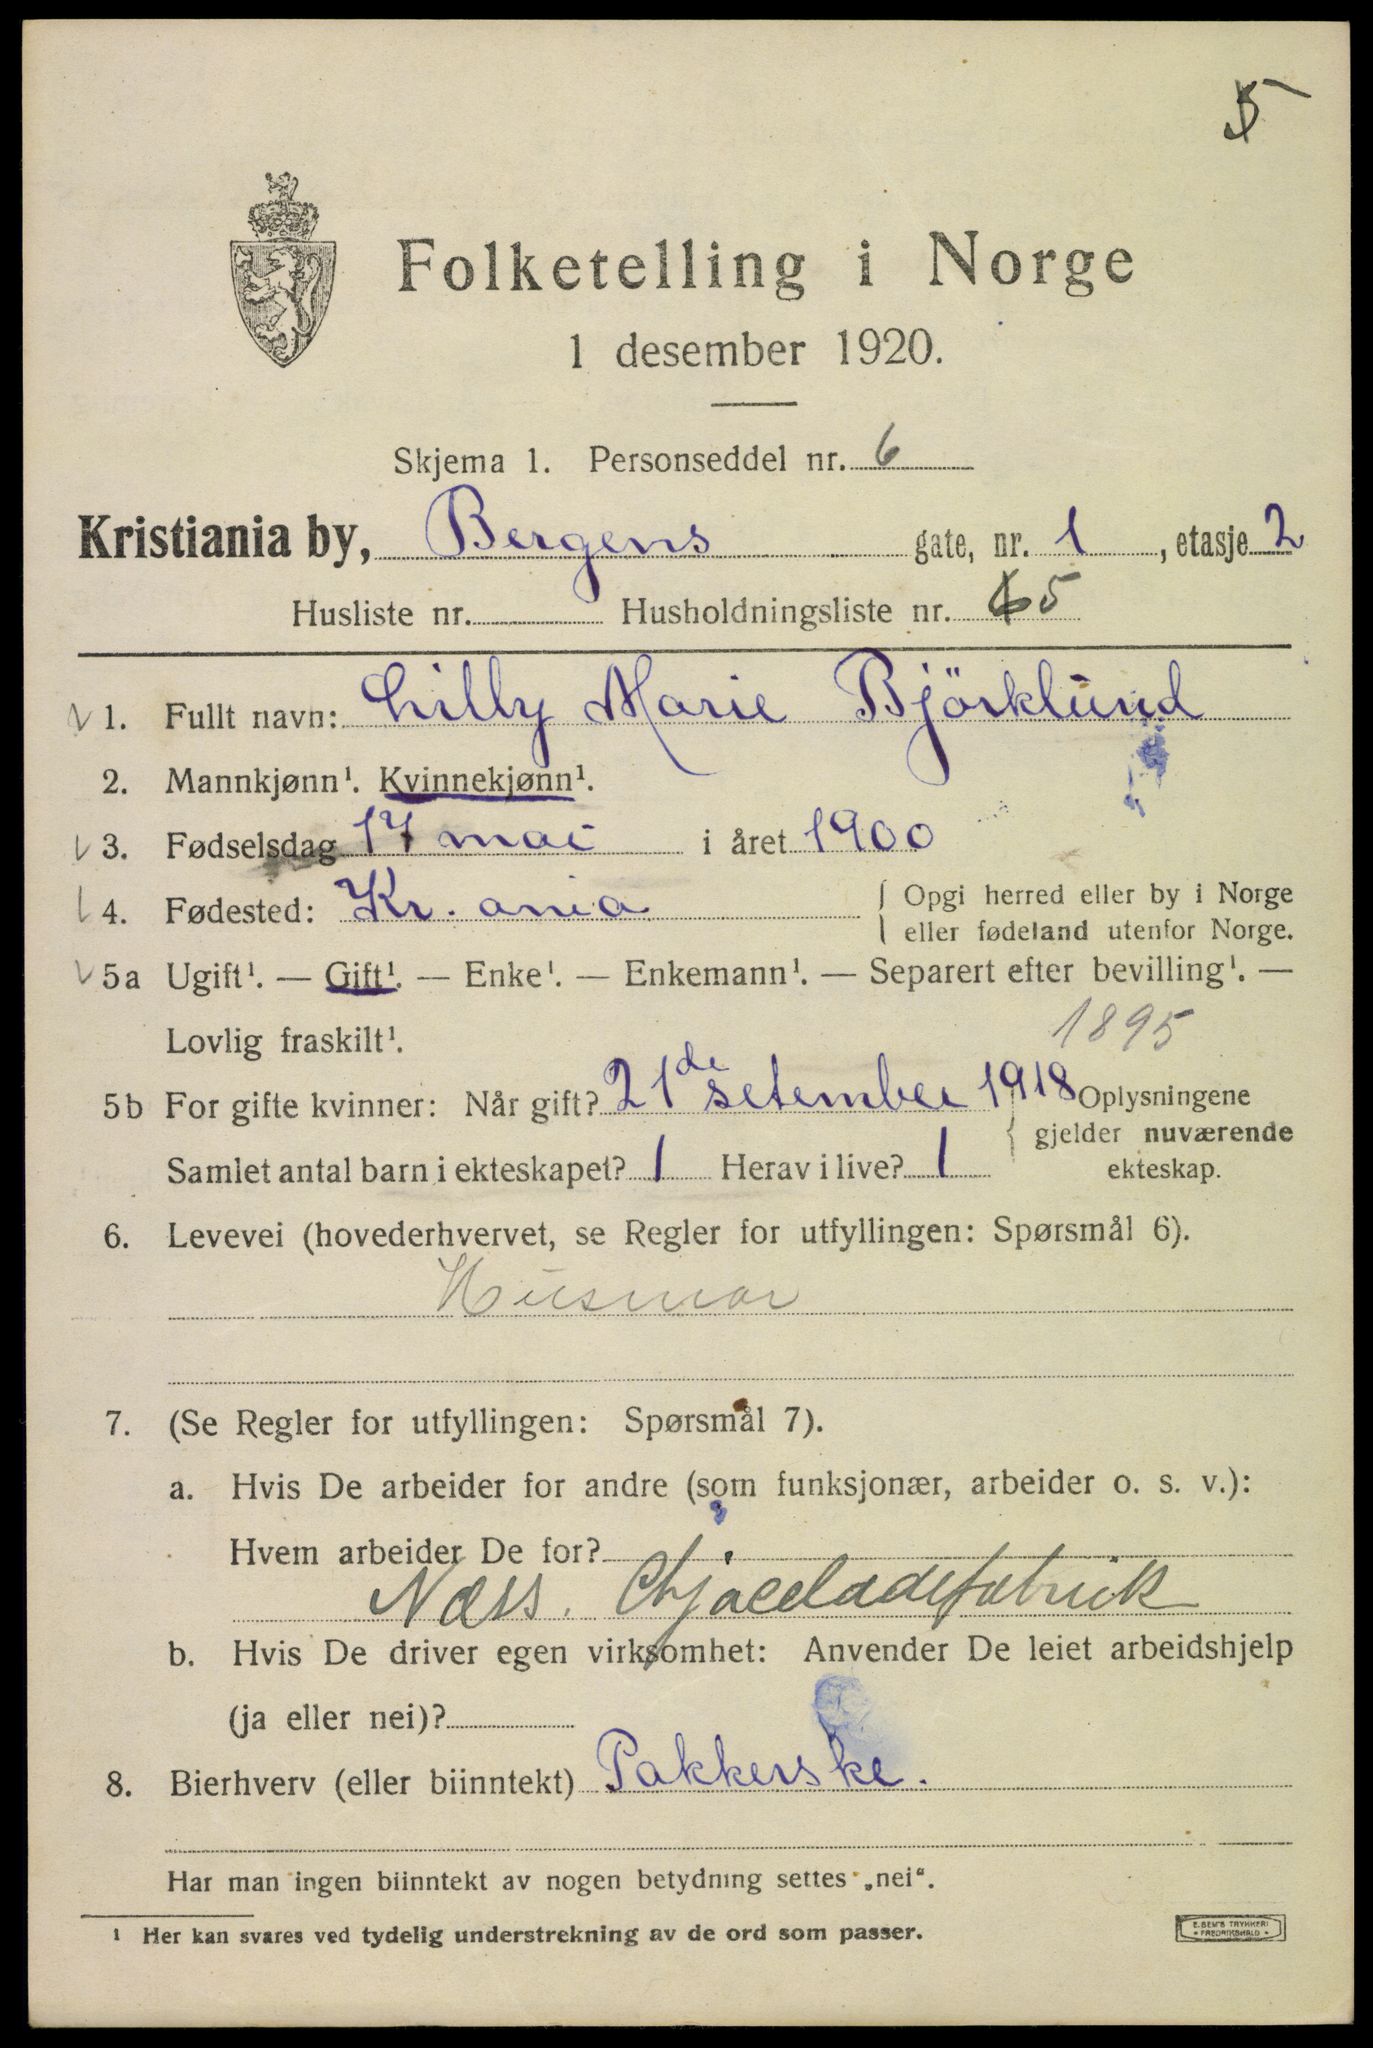 5
Folketelling i Norge
1 desember 1920.
Skjema 1. Personseddel nr. 6
Kristiania by, Bergens gate, nr. 1, etasje 2
Husliste nr. Husholdningsliste nr. 6 5
1. Fullt navn: Lilly Marie Björklund
2. Mannkjønn¹. Kvinnekjønn¹.
3. Fødselsdag 17 mai i året 1900
4. Fødested: Kr. ania { Opgi herred eller by i Norge
eller fødeland utenfor Norge.
5a Ugift¹. — Gift¹. — Enke¹. — Enkemann¹. — Separert efter bevilling¹. —
Lovlig fraskilt¹. 1895
5b For gifte kvinner: Når gift? 21de setember 1918 Oplysningene
gjelder nuværende
Samlet antal barn i ekteskapet? 1 Herav i live? 1 ekteskap.
6. Levevei (hovederhvervet, se Regler for utfyllingen: Spørsmål 6).
Husmor
7. (Se Regler for utfyllingen: Spørsmål 7).
a. Hvis De arbeider for andre (som funksjonær, arbeider o. s. v.):
Hvem arbeider De for?
Næss.
b. Hvis De driver egen virksomhet: Anvender De leiet arbeidshjelp
(ja eller nei)?
8. Bierhverv (eller biinntekt) Pakkerske.
Har man ingen biinntekt av nogen betydning settes „nei“.
¹ Her kan svares ved tydelig understrekning av de ord som passer.
E. SEM'S TRYKKERI
FREDRIKSHALD